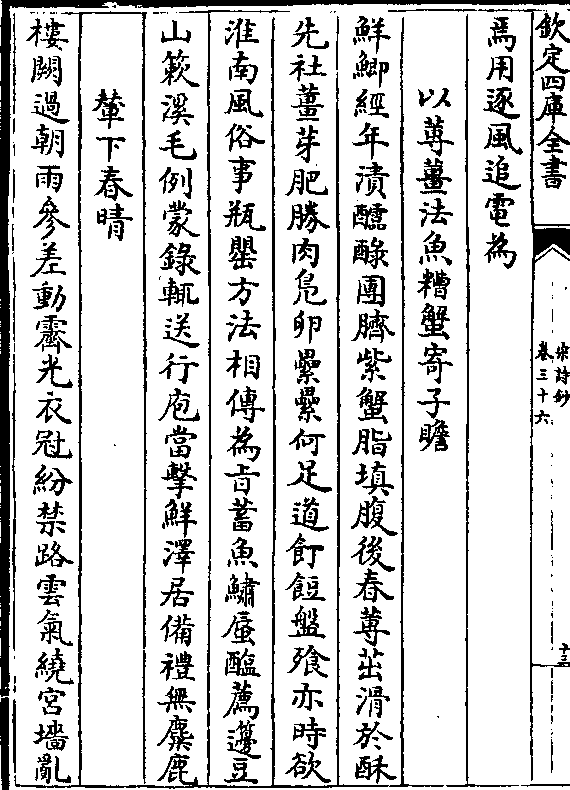 欽定四庫全書
宋詩鈔
卷三十六
十三
焉用逐風追電為
以蓴薑法魚糟蟹寄子瞻
鮮鯽經年漬醽醁團臍紫蟹脂填腹後春蓴茁滑於酥
先社薑芽肥勝肉鳬卵纍纍何足道飣餖盤飱亦時欲
淮南風俗事瓶罌方法相傳為㫖蓄魚鱐蜃醢薦籩豆
山蔌溪毛例蒙錄輒送行庖當擊鮮澤居備禮無麋鹿
輦下春晴
樓闕過朝雨參差動霽光衣冠紛禁路雲氣繞宮墻亂